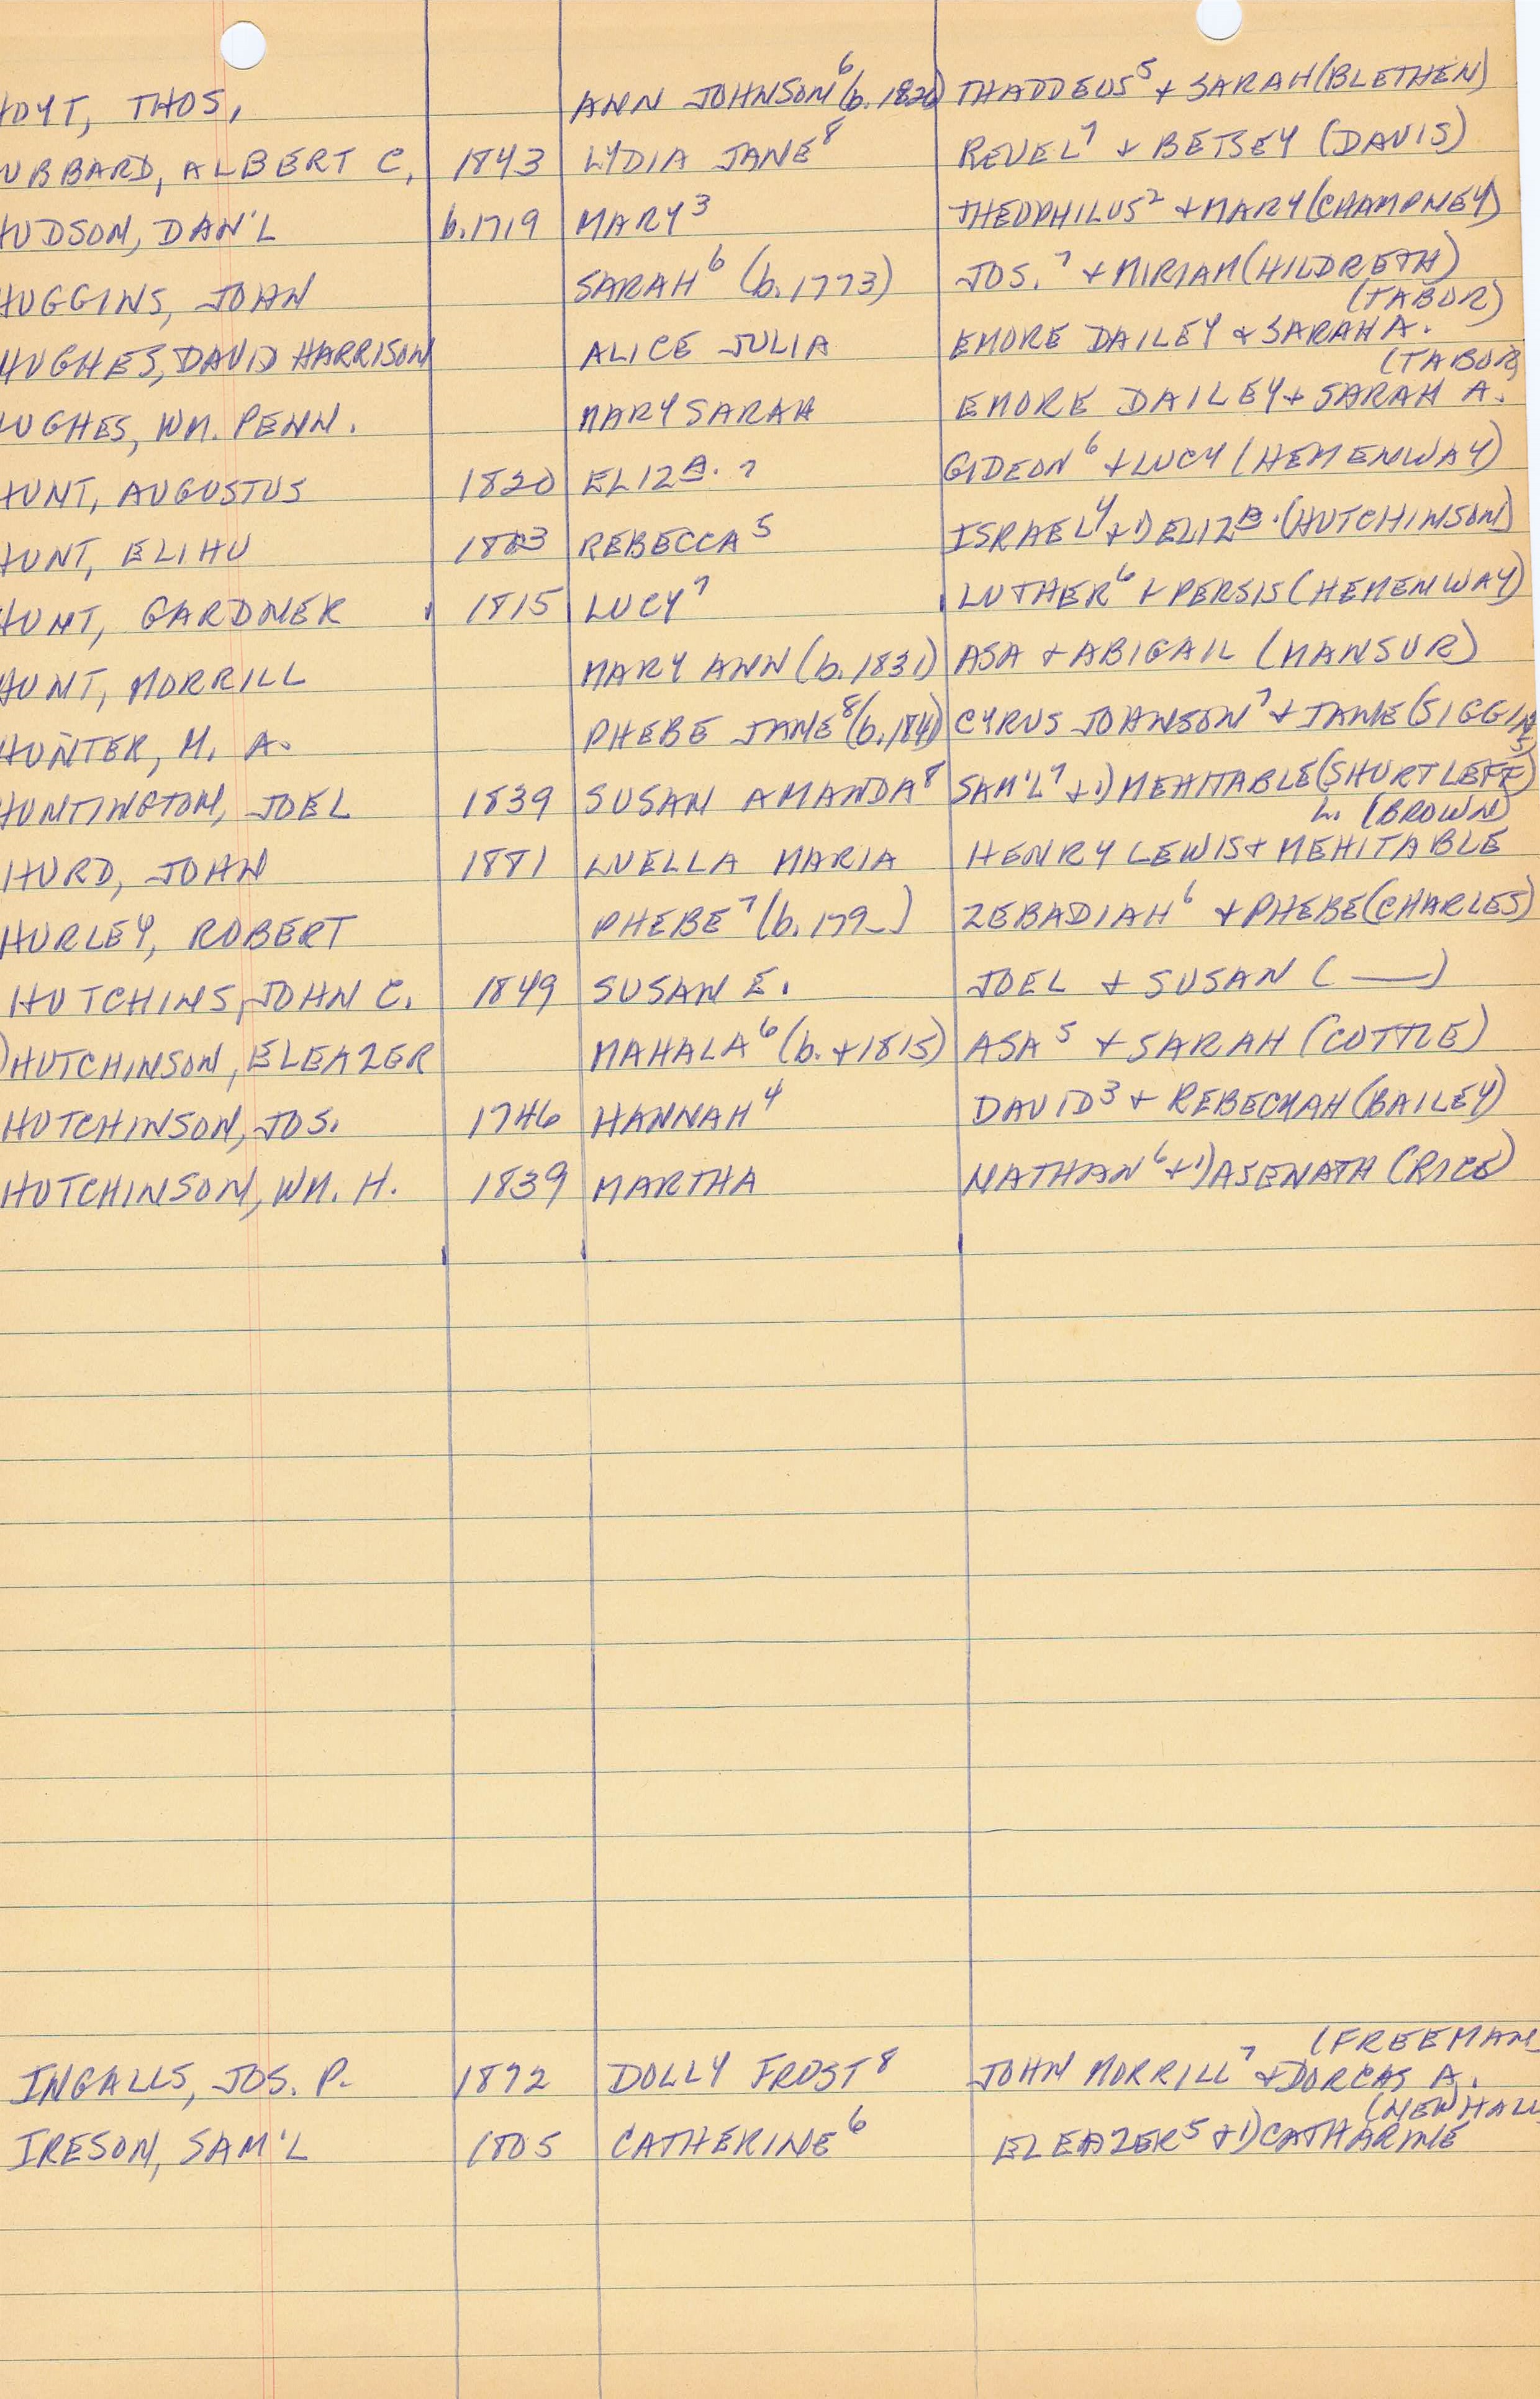 HOYT, THOS. ANN JOHNSON⁶ (b. 1820) THADDEUS⁵ + SARAH (BLETHEN)
HUBBARD, ALBERT C. 1843 LYDIA JANE⁸ REUEL⁷ + BETSEY (DAVIS)
HUDSON, DAN'L b. 1719 MARY³ THEOPHILUS² + MARY (CHAMPNEY)
HUGGINS, JOHN SARAH⁶ (b. 1773) JOS.⁷ + MIRIAM (HILDRETH)
(TABOR)
HUGHES, DAVID HARRISON ALICE JULIA EMORE DAILEY & SARAH A.
(TABOR)
HUGHES, WM. PENN. MARY SARAH EMORE DAILEY + SARAH A.
HUNT, AUGUSTUS 1820 ELIZᴬ. ⁷ GIDEON⁶ + LUCY (HEMENWAY)
HUNT, ELIHU 1803 REBECCA⁵ ISRAEL⁴ + 1) ELIZᴬ. (HUTCHINSON)
HUNT, GARDNER 1815 LUCY⁷ LUTHER⁶ + PERSIS (HEMENWAY)
HUNT, MORRILL MARY ANN (b. 1831) ASA + ABIGAIL (MANSUR)
HUNTER, M. A. PHEBE JANE⁸ (b. 1841) CYRUS JOHNSON⁷ + JANE (SIGGINS
HUNTINGTON, JOEL 1839 SUSAN AMANDA⁸ SAM'L⁷ + 1) MEHITABLE (SHURTLEFF)
L. (BROWN)
HURD, JOHN 1881 LUELLA MARIA HENRY LEWIS + MEHITABLE
HURLEY, ROBERT PHEBE⁷ (b. 179_) ZEBADIAH⁶ + PHEBE (CHARLES)
HUTCHINS, JOHN C. 1849 SUSAN E. JOEL + SUSAN ( — )
) HUTCHINSON, ELEAZER MAHALA⁶ (b. +1815) ASA⁵ + SARAH (COTTLE)
HUTCHINSON, JOS. 1746 HANNAH⁴ DAVID³ + REBECKAH (BAILEY)
HUTCHINSON, WM. H. 1839 MARTHA NATHAN⁶ + 1) ASENATH (RICE)
(FREEMAN
INGALLS, JOS. P. 1872 DOLLY FROST⁸ JOHN MORRILL⁷ + DORCAS A.
(NEWHALL
IRESON, SAM'L 1805 CATHERINE⁶ ELEAZER⁵ + 1) CATHARINE